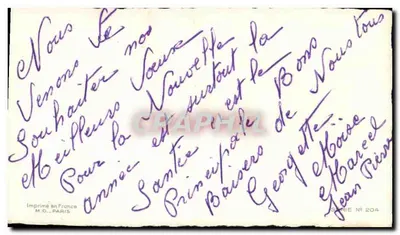 Nous
Venons te
Souhaiter nos
Meilleurs Vœux
Pour la Nouvelle
année et surtout la
Santée c est le
Principale Bons
Baisers de Nous tous
Georgette
Moïse
Marcel
Jean Pierre
Imprimé en France
M.D. PARIS
SERIE Nº 204
CPAPHIL